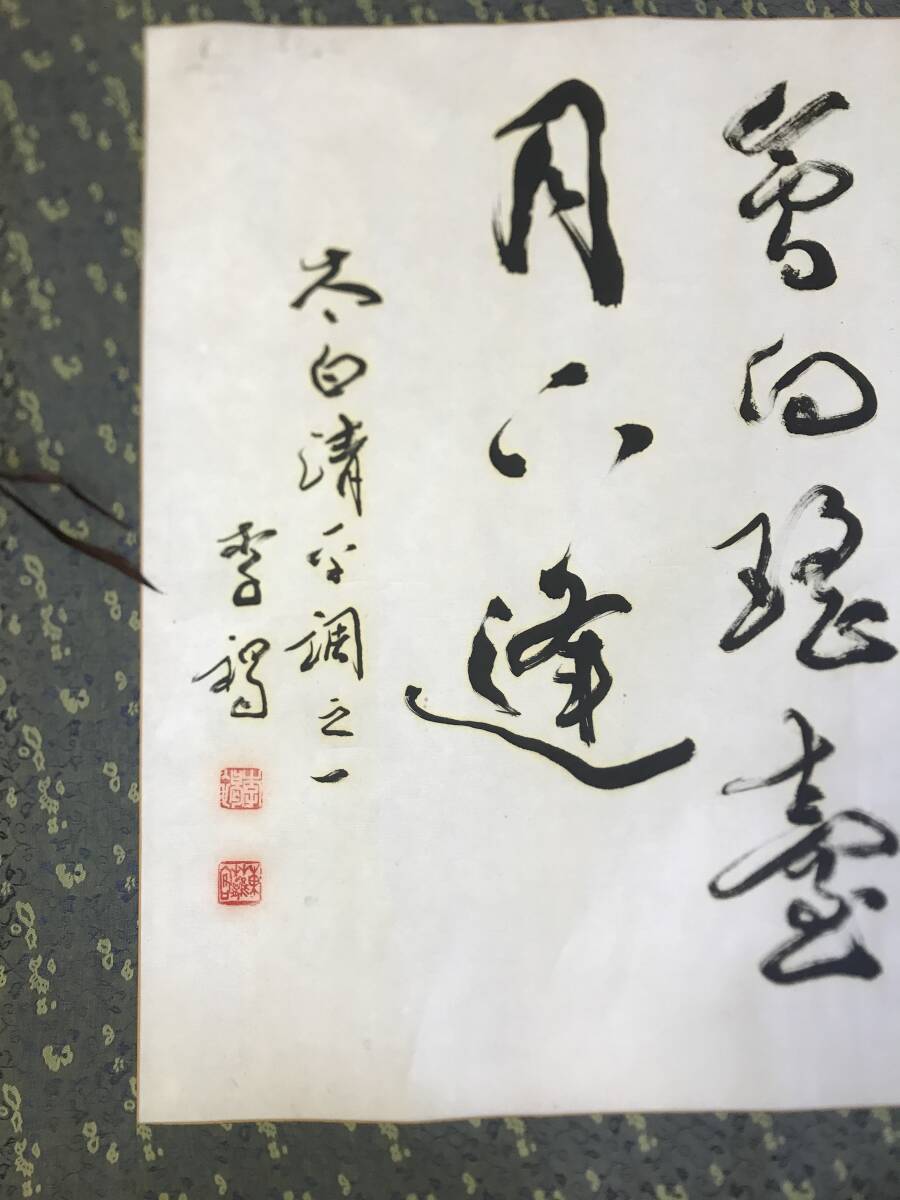 會向瑤臺
月下逢
太白清平調之一
李